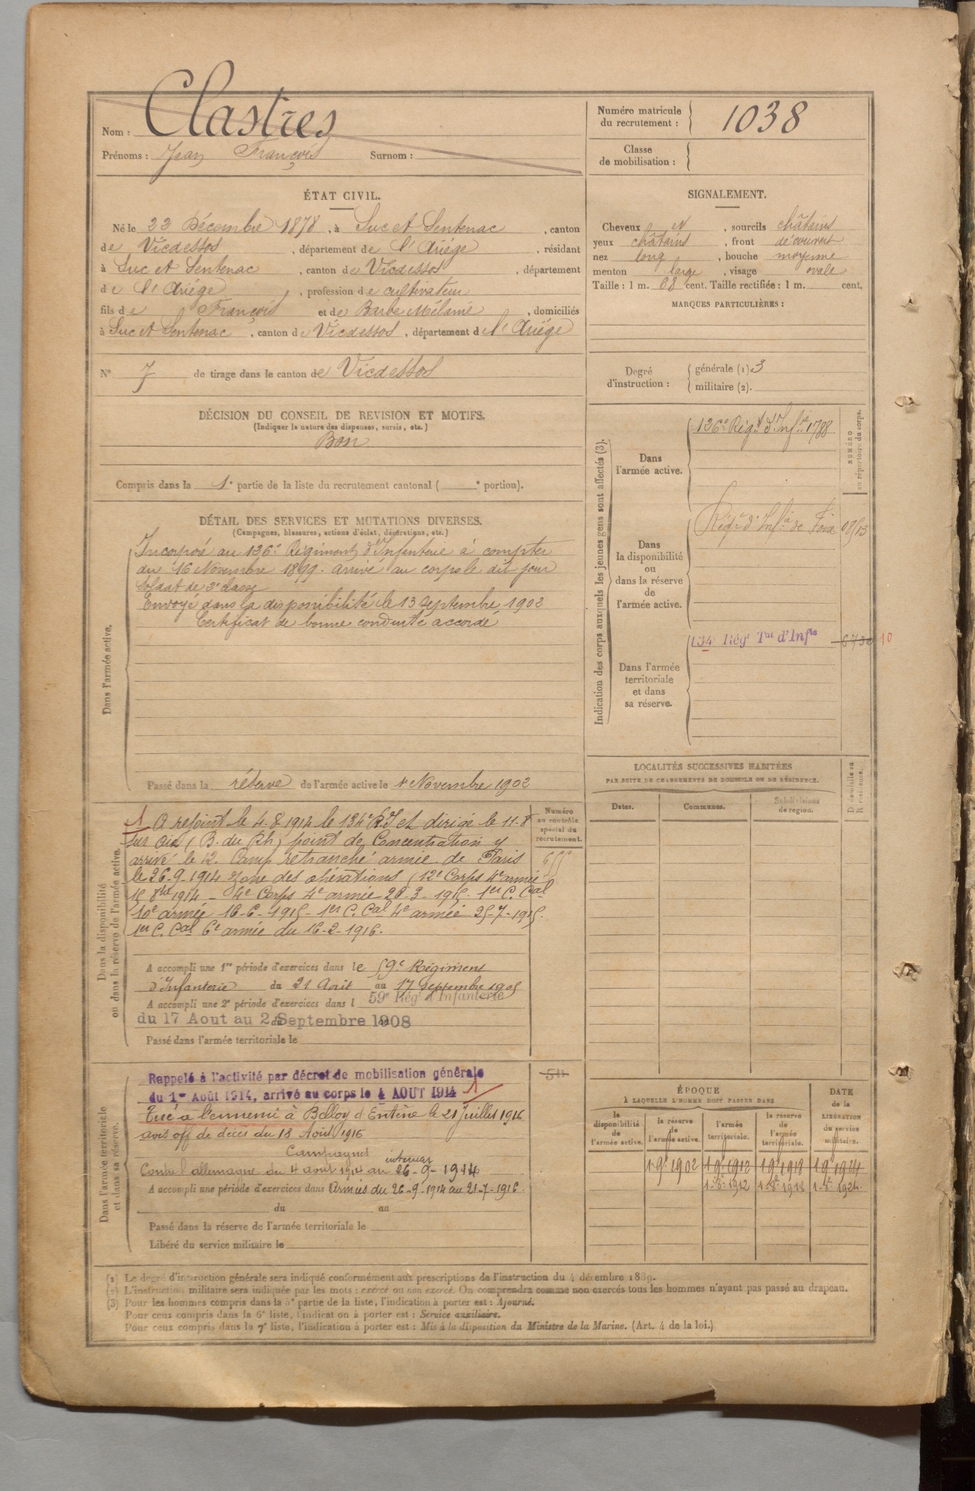 Nom : Clastres
Prénoms : Jean François Surnom :
Numéro matricule du recrutement : 1038
Classe de mobilisation :
ÉTAT CIVIL.
Né le 22 Décembre 1878, à Suc et Sentenac, canton
de Vicdessos, département de l'Ariége, résidant
à Suc et Sentenac, canton de Vicdessos, département
de l'Ariége, profession de cultivateur
fils de François et de Barbe Mélanie, domiciliés
à Suc et Sentenac, canton de Vicdessos, département de l'Ariége
N° 7 de tirage dans le canton de Vicdessos
SIGNALEMENT.
Cheveux et N, sourcils châtains
yeux châtains, front découvert
nez long, bouche moyenne
menton large, visage ovale
Taille : 1 m. 68 cent. Taille rectifiée : 1 m. cent.
MARQUES PARTICULIÈRES :
Degré d'instruction : générale (1) 3
militaire (2).
DÉCISION DU CONSEIL DE REVISION ET MOTIFS.
(Indiquer la nature des dispenses, sursis, etc.)
Bon
Compris dans la 1e partie de la liste du recrutement cantonal ( e portion).
DÉTAIL DES SERVICES ET MUTATIONS DIVERSES.
(Campagnes, blessures, actions d'éclat, décorations, etc.)
Dans l'armée active.
Incorporé au 136e Régiment d'Infanterie à compter
du 16 Novembre 1899. arrivé au corps le dit jour
Soldat de 2e classe
Envoyé dans la disponibilité le 13 Septembre 1902
Certificat de bonne conduite accordé
Passé dans la réserve de l'armée active le 1er Novembre 1902
Dans la disponibilité ou dans la réserve de l'armée active.
Numéro au contrôle spécial du recrutement.
1 A rejoint le 4-8-1914 le 134e R.I et dirigé le 11-8
sur Aix (B. du Rh) point de Concentration y
arrivé le 12. Camp retranché armée de Paris
le 26-9-1914 zone des opérations (12e Corps 4e armée
15 8bre 1914 - 4e Corps 4e armée 20-3-1915- 1er C. Cal
10e armée 16-6-1915- 1er C. Cal 4e armée 25-7-1915.
1er C. Cal 6e armée du 16-2-1916.
A accompli une 1re période d'exercices dans le 59e Régiment
d'Infanterie du 21 Août au 17 Septembre 1905
A accompli une 2e période d'exercices dans l 59e Rég d'Infanterie
du 17 Aout au 2 Septembre 1908
Passé dans l'armée territoriale le
Dans l'armée territoriale et dans sa réserve.
Rappelé à l'activité par décret de mobilisation générale
du 1er Août 1914, arrivé au corps le 4 AOUT 1914 1
Tué à l'ennemi à Belloy d'Entine le 21 Juillet 1916
avis off de décès du 18 Août 1916
Campagnes
Contre l'allemagne du 4 août 1914 au 26-9-1914
intérieur
A accompli une période d'exercices dans Armées du 26-9-1914 au 21-7-1916
du au
Passé dans la réserve de l'armée territoriale le
Libéré du service militaire le
Indication des corps auxquels les jeunes gens sont affectés (3).
NUMÉRO au répertoire du corps.
Dans l'armée active.
136e Régt d'Infie 1788
Dans la disponibilité ou dans la réserve de l'armée active.
Régt d'Infie de Foix
Dans l'armée territoriale et dans sa réserve.
134 Régt Tal d'Infie 10
LOCALITÉS SUCCESSIVES HABITÉES
PAR SUITE DE CHANGEMENTS DE DOMICILE OU DE RÉSIDENCE.
Dates. Communes. Subdivisions de région.
ÉPOQUE
À LAQUELLE L'HOMME DOIT PASSER DANS
DATE de la LIBÉRATION du service militaire.
la disponibilité de l'armée active.
la réserve de l'armée active.
l'armée territoriale.
la réserve de l'armée territoriale.
1-9-1902 1-9-1912 1-9-1918 1-9-1924
1-8-1912 1-8-1918 1-8-1924
(1) Le degré d'instruction générale sera indiqué conformément aux prescriptions de l'instruction du 4 décembre 1889.
(2) L'instruction militaire sera indiquée par les mots : exercé ou non exercé. On comprendra comme non exercés tous les hommes n'ayant pas passé au drapeau.
(3) Pour les hommes compris dans la 5e partie de la liste, l'indication à porter est : Ajourné.
Pour ceux compris dans la 6e liste, l'indication à porter est : Service auxiliaire.
Pour ceux compris dans la 7e liste, l'indication à porter est : Mis à la disposition du Ministre de la Marine. (Art. 4 de la loi.)